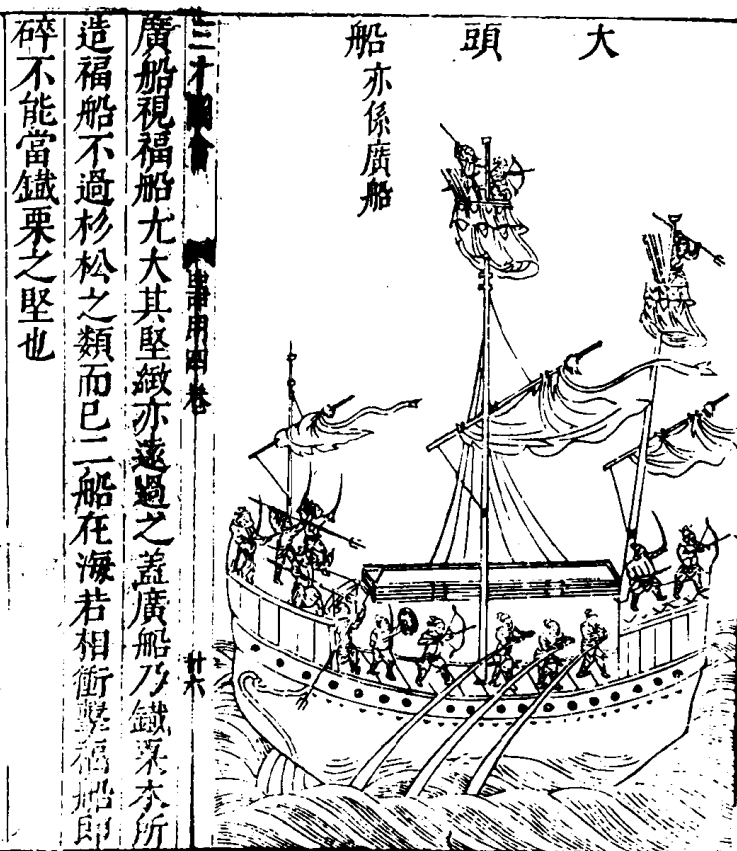 大頭船
亦係廣船
三才圖會
器用四卷
廿六
廣船視福船尤大其堅緻亦遠過之蓋廣船乃鐵栗木所
造福船不過杉松之類而已二船在海若相衝擊福船即
碎不能當鐵栗之堅也